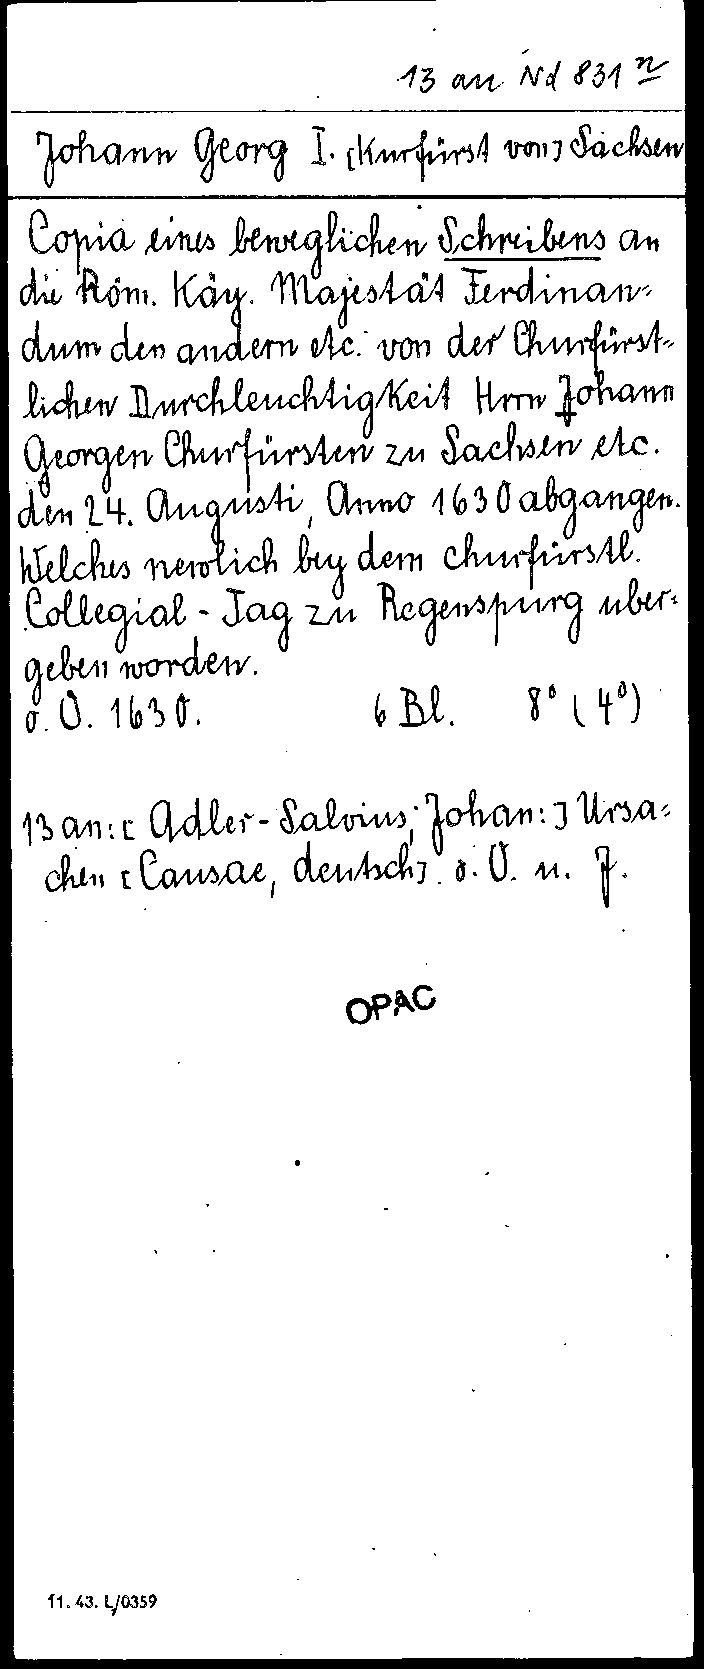 13 an Nd 831 n
Johann Georg I. [Kurfürst von] Sachsen
Copia eines beweglichen Schreibens an
die Röm. Käy. Majestät Ferdinan-
dum den andern etc. von der Churfürst-
lichen Durchleuchtigkeit Hrrn Johann
Georgen Churfürsten zu Sachsen etc.
den 24. Augusti, Anno 1630 abgangen.
Welches newlich bey dem churfürstl.
Collegial-Tag zu Regenspurg uber-
geben worden.
o. O. 1630. 6 Bl. 8° (4°)
13 an: [Adler-Salvius, Johan:] Ursa-
chen [Causae, deutsch]. o. O. u. J.
OPAC
11. 43. L/0359